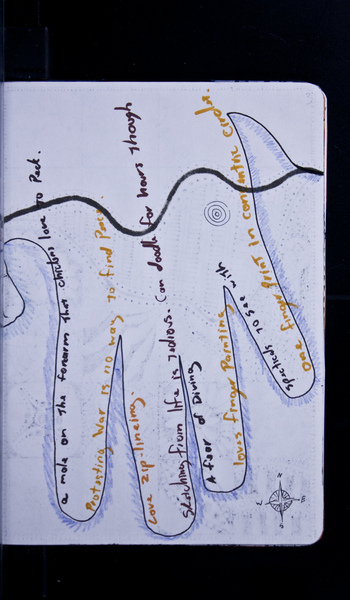 a mole on the forearm that chickens love to Peck.
Protesting War is no way to find Peace
Love zip-lineing.
Sketching from life is Tedious. Can doodle for hours Though
A fear of Diving
loves finger Painting
specticals To See with
One finger print in concentric circles.
N
E
S